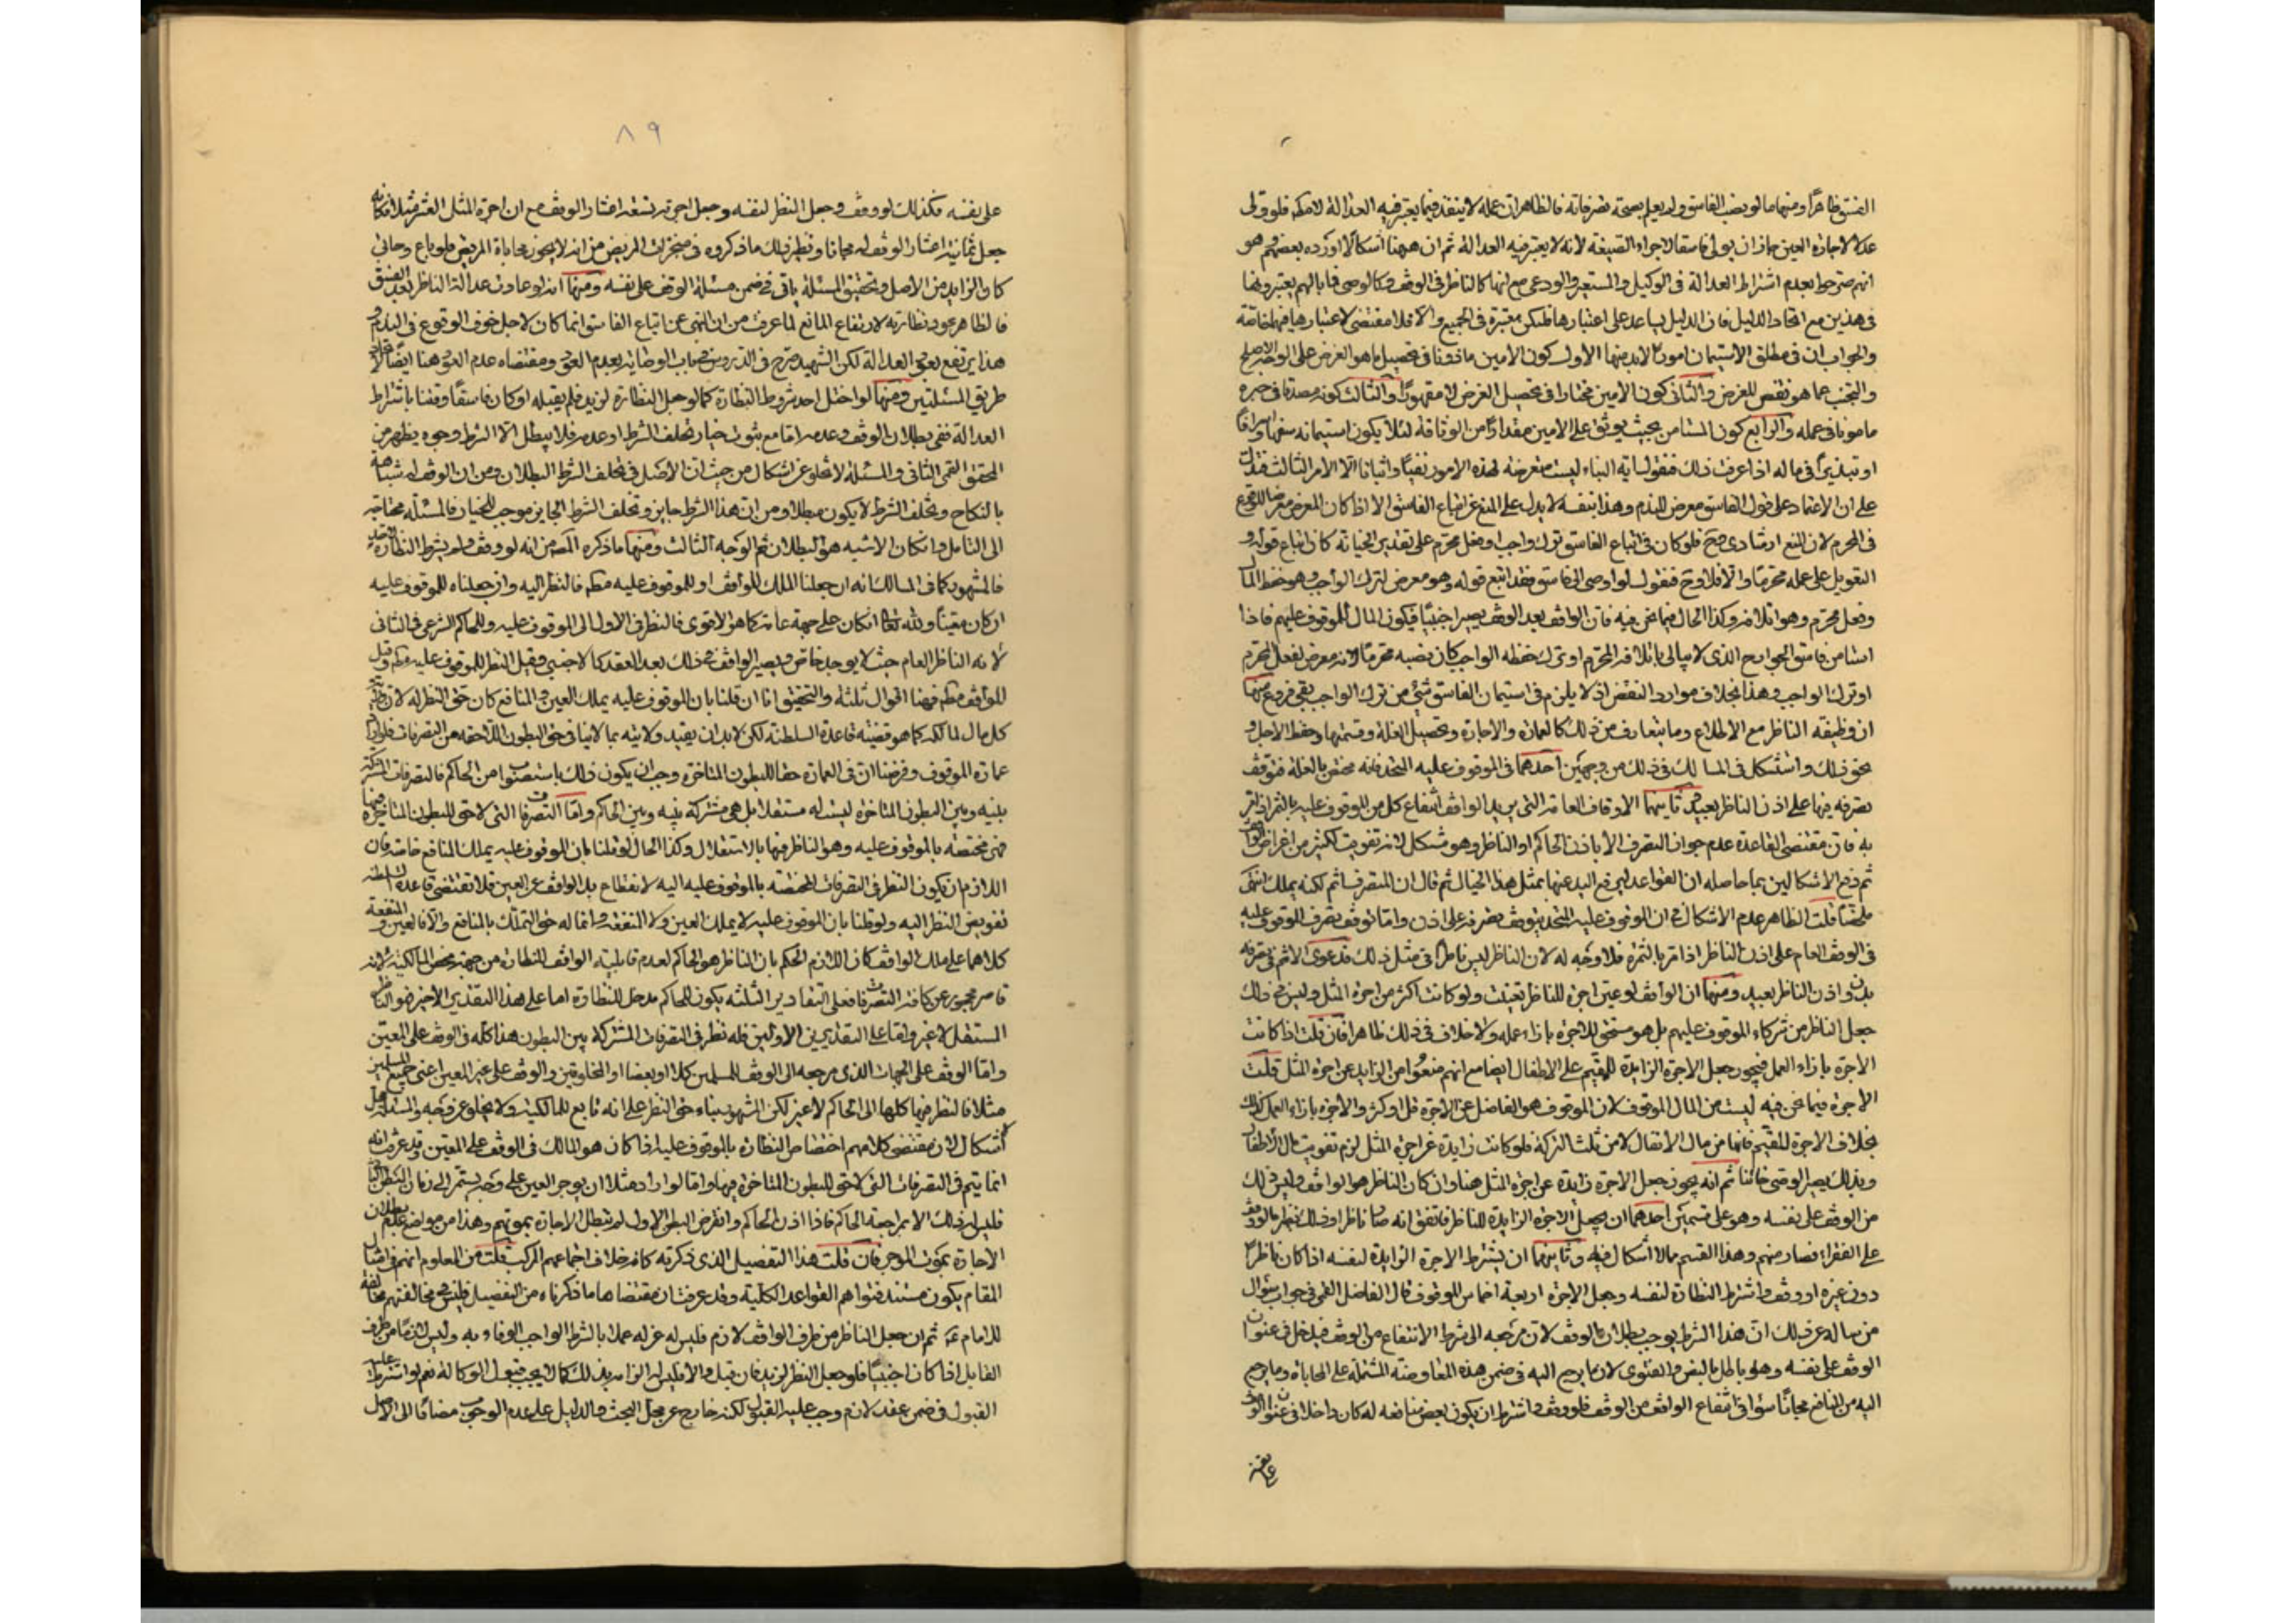 الفسق ظاهرا ومنها ما لو نصب الفاسق ولم يعلم بصحة تصرفاته فالظاهر ان عمله لا ينفذ فيما يعتبر فيه العدالة فلو ولى
عدلا لاجارة العين جاز ان يولى فاسقا لاجراء الصيغة لانه لا يعتبر فيه العدالة ثم ان ههنا اشكالا اورده بعضهم وهو
انهم صرحوا بعدم اشتراط العدالة فى الوكيل والمستعير والودعى مع انها كالناظر فى الوقف وكالوصى فما بالهم يعتبرونها
فى هذين مع اتحاد الدليل فان الدليل يساعد على اعتبارها فلتكن معتبرة فى الجميع والا فلا مقتضى لاعتبارها فيهما خاصة
والجواب ان فى مطلق الاستيمان امورا لابد منها الاول كون الامين ماذونا فى تحصيل ما هو الغرض على الوجه الاصلح
والتجنب عما هو نقص للغرض والثانى كون الامين مختارا فى تحصيل الغرض لا مقهورا والثالث كونه مصدقا فى خبره
مامونا فى عمله والرابع كون المستامن بحيث يوثق على الامين مقدارا من الوثاقة لئلا يكون استيمانه سفها واسرافا
او تبذيرا فى ماله اذا عرفت ذلك فنقول اية النباء ليست متعرضة لهذه الامور نفيا واثباتا الا الامر الثالث فتدل
على ان الاعتماد على قول الفاسق معرض للندم وهذا بنفسه لا يدل على المنع عن اتباع الفاسق الا اذا كان المعرض معرضا للوقوع
فى المحرم لان المنع ارشادى صح فلو كان فى اتباع الفاسق ترك واجب او فعل محرم على تقدير الخيانة كان اتباع قوله و
التعويل على عمله محرما والا فلا وح فنقول لو اوصى الى فاسق فقد اتبع قوله وهو معرض لترك الواجب وهو حفظ المال
وفعل محرم وهو اتلافه وكذا الحال فيما نحن فيه فان الواقف بعد الوقف يصير اجنبيا فيكون المال للموقوف عليهم فاذا
استامن فاسق الجوارح الذى لا يبالى باتلافه المحرم او ترك حفظه الواجب كان نصبه محرما لانه معرض لفعل المحرم
او ترك الواجب وهذا بخلاف موارد النقض اذ لا يلزم فى استيمان الفاسق شئ من ترك الواجب بقى فروع منها
ان وظيفة الناظر مع الاطلاع وما يتعارف من ذلك كالعمارة والاجارة وتحصيل الغلة وقسمتها وحفظ الاصل و
نحو ذلك واستشكل فى المسالك فى ذلك من وجهين احدهما فى الموقوف عليه المتحد فانه مختص بالغلة فتوقف
تصرفه فيها على اذن الناظر بعيد وثانيهما الاوقاف العامة التى يريد الواقف انتفاع كل من الموقوف عليه بالثمر اذا مر
به فان مقتضى القاعدة عدم جواز التصرف الا باذن الحاكم او الناظر وهو مشكل لانه تفويت لكثير من اغراض
ثم دفع الاشكالين بما حاصله ان القواعد لا يرفع اليد عنها بمثل هذا الخيال ثم قال ان المتصرف اثم لكنه يملك انتهى
ملخصا قلت الظاهر عدم الاشكال فى ان الموقوف عليه المتحد يتوقف تصرفه على اذن واما توقف تصرف الموقوف عليه
فى الوقف العام على اذن الناظر اذا مر بالثمرة فلا وجه له لان الناظر ليس ناظرا فى مثل ذلك فدعوى الاثم فى تصرفه
بدون اذن الناظر بعيد ومنها ان الواقف لو عين اجرة للناظر تعينت ولو كانت اكثر من اجرة المثل وليس فى ذلك
جعل الناظر من شركاء الموقوف عليهم بل هو مستحق للاجرة بازاء عمله ولا خلاف فى ذلك ظاهرا فان قلت اذا كانت
الاجرة بازاء العمل فيجوز جعل الاجرة الزايدة للقيم على الاطفال ايضا مع انهم منعوا من الزايد عن اجرة المثل قلت
الاجرة فيما نحن فيه ليست من المال الموقوف لان الموقوف هو الفاضل عن الاجرة قل او كثر والاجرة بازاء العمل كذلك
بخلاف الاجرة للقيم فانها من مال الاطفال لا من ثلث التركة فلو كانت زايدة عن اجرة المثل لزم تفويت مال الاطفال
وبذلك يصير الوصى خائنا ثم انه يجوز جعل الاجرة زايدة عن اجرة المثل هنا وان كان الناظر هو الواقف وليس ذلك
من الوقف على نفسه وهو على قسمين احدهما ان يجعل الاجرة الزايدة للناظر فاتفق انه صار ناظرا وذلك نظير ما لو وقف
على الفقراء فصار منهم وهذا القسم مما لا اشكال فيه وثانيهما ان يشترط الاجرة الزايدة لنفسه اذا كان ناظرا
دون غيره او وقف واشترط النظارة لنفسه وجعل الاجرة اربعة اخماس الموقوف قال الفاضل القمى فى جواب سؤال
من ساله عن ذلك ان هذا الشرط يوجب بطلان الوقف لان مرجعه الى شرط الانتفاع من الوقف فيدخل فى عنوان
الوقف على نفسه وهو باطل بالنص والفتوى لان ما يرجع اليه فى ضمن هذه المعاوضة المشتملة على المحاباة وما يرجع
اليه من المنافع مجانا سواء فى انتفاع الواقف من الوقف فلو وقف واشترط ان يكون بعض منافعه له كان داخلا فى عنوان الوقف
على نفسه
٨٩
على نفسه فكذلك لو وقف وجعل النظر لنفسه وجعل اجرته تسعة اعشار الوقف مع ان اجرة المثل العشر مثلا فكانه
جعل ثمانية اعشار الوقف له مجانا ونظير ذلك ما ذكروه فى منجزات المريض من انه لا يجوز محاباة المريض فلو باع وحابى
كان الزايد من الاصل وتحقيق المسئلة ياتى فى ضمن مسئلة الوقف على نفسه ومنها انه لو عادت عدالة الناظر بعد الفسق
فالظاهر عود نظارته لارتفاع المانع لما عرفت من ان النهى عن اتباع الفاسق انما كان لاجل خوف الوقوع فى الندم و
هذا يرتفع بعود العدالة لكن الشهيد صرح فى الدروس فى باب الوصاية بعدم العود ومقتضاه عدم العود هنا ايضا
طريق المسئلتين ومنها لو اختل احد شروط النظارة كما لو جعل النظارة لزيد فلم يقبله او كان فاسقا وقلنا باشتراط
العدالة ففى بطلان الوقف وعدمه اما مع ثبوت خيار تخلف الشرط او عدمه فلا يبطل الا الشرط وجوه يظهر من
المحقق القمى الثانى والمسئلة لا تخلو عن اشكال من حيث ان الاصل فى تخلف الشرط البطلان ومن ان الوقف له شباهة
بالنكاح وتخلف الشرط لا يكون مبطلا ومن ان هذا الشرط جايز وتخلف الشرط الجايز موجب للخيار فالمسئلة محتاجة
الى التامل وان كان الاشبه هو البطلان ثم الوجه الثالث ومنها ما ذكره المصـ من انه لو وقف ولم يشترط النظارة
فالمشهور كما فى المسالك انه ان جعلنا الملك للواقف او للموقوف عليه مطـ فالنظر اليه وان جعلناه للموقوف عليه
ان كان معينا ولله تعالى ان كان على جهة عامة كما هو الاقوى فالنظر فى الاول الى الموقوف عليه وللحاكم الشرعى فى الثانى
لانه الناظر العام حيث لا يوجد خاص ويصير الواقف فى ذلك بعد العقد كالاجنبى وقيل النظر للموقوف عليه مطـ وقيل
للواقف مطـ فهنا اقوال ثلثة والتحقيق انا ان قلنا بان الموقوف عليه يملك العين والمنافع كان حق النظر له لان
كل مال لمالكه كما هو قضية قاعدة السلطنة لكن لابد ان يقيد ولايته بما لا ينافى حق البطون اللاحقة من التصرفات فلو اراد
عمارة الموقوف وفرضنا ان فى العمارة حقا للبطون المتاخرة وجب ان يكون ذلك باستصواب من الحاكم فالتصرفات المشتركة
بينه وبين البطون المتاخرة ليست له مستقلا بل هى مشتركة بينه وبين الحاكم واما التصرفات التى لا حق للبطون المتاخرة فيها
فهى مختصة بالموقوف عليه وهو الناظر فيها بالاستقلال وكذا الحال لو قلنا بان الموقوف عليه يملك المنافع خاصة فان
اللازم ان يكون النظر فى التصرفات المختصة بالموقوف عليه اليه لانقطاع يد الواقف عن العين فلا تقتضى قاعدة السلطنة
تفويض النظر اليه ولو قلنا بان الموقوف عليه لا يملك العين ولا المنفعة وانما له حق التملك بالمنافع والا فالعين والمنفعة
كلاهما على ملك الواقف كان اللازم الحكم بان الناظر هو الحاكم لعدم قابلية الواقف للنظارة من جهة محض المالكية لانه
قاصر محجور عن كافة التصرفات فعلى التقادير الثلثة يكون للحاكم مدخل للنظارة اما على هذا التقدير الاخير فهو الناظر
المستقل لا غير واما على التقديرين الاولين فله نظر فى التصرفات المشتركة بين البطون هذا كله فى الوقف على المعين
واما الوقف على الجهات الذى مرجعه الى الوقف للمسلمين كلا او بعضا او المخلوقين والوقف على غير المعين اعنى جميع المسلمين
مثلا فالنظر فيها كلها الى الحاكم لا غير لكن المشهور بناء حق النظر على انه تابع للمالكية ولا يخلو عن وجه والمسئلة محل
اشكال لان مقتضى كلامهم اختصاص النظارة بالموقوف عليه اذا كان هو المالك فى الوقف على المعين وقد عرفت انه
انما يتم فى التصرفات التى لا حق للبطون المتاخرة فيها واما لو اراد مثلا ان يوجر العين على وجه يستمر الى زمان البطن
فليس له ذلك الا بمراجعة الحاكم فاذا اذن الحاكم وانقرض البطن الاول لم تبطل الاجارة بموتهم وهذا من مواضع عدم بطلان
الاجارة بموت الموجر فان قلت هذا التفصيل الذى ذكرته كانه خلاف اجماعهم المركب قلت من المعلوم انهم فى امثال
المقام يكون مستند فتواهم القواعد الكلية وقد عرفت ان مقتضاها ما ذكرناه من التفصيل فليس فى مخالفتهم مخالفة
للامام عـ ثم ان جعل الناظر من طرف الواقف لازم فليس له عزله عملا بالشرط الواجب الوفاء به وليس لازما من طرف
القابل اذا كان اجنبيا فلو جعل النظر لزيد فان قبل والا فليس له الزامه بذلك كما لا يجب قبول الوكالة نعم لو اشترط عليه
القبول فى ضمن عقد لازم وجب عليه القبول لكنه خارج عن محل البحث والدليل على عدم الوجوب مضافا الى الاصل